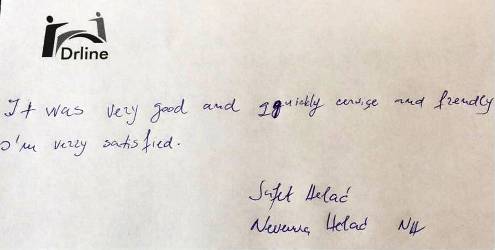 Drline
It was very good and qquickly cervise and frendly
I'm verry satisfied.
Safet Helać
Nevenka Helać NH